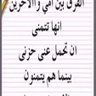 الفرق بين امي والآخرين
انها تتمنى
ان تحمل عني حزني
بينما هم يتمنون